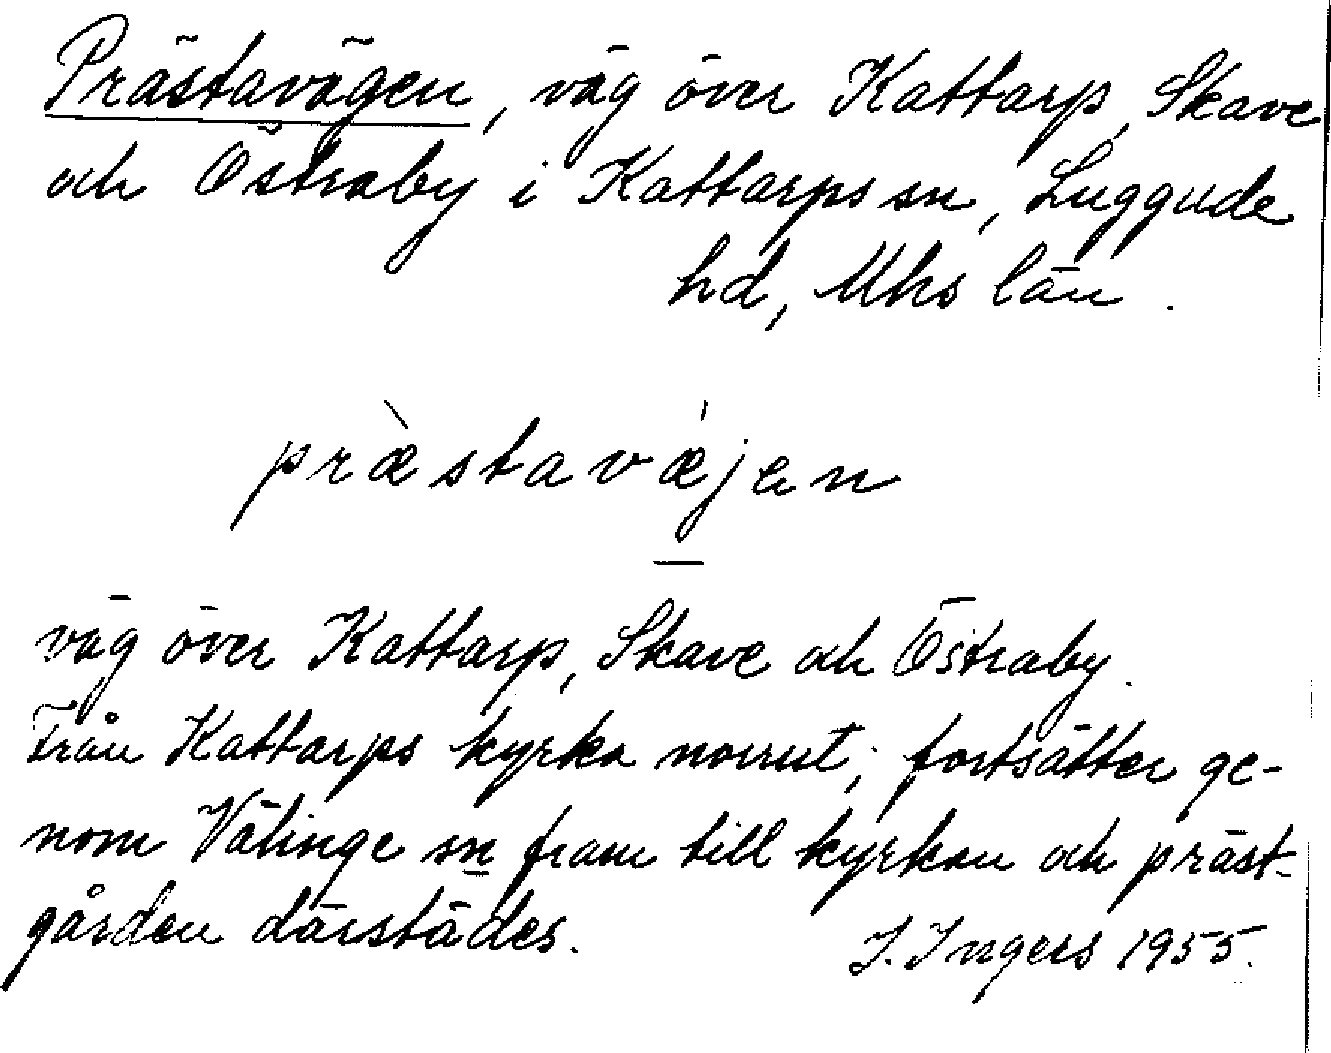 Prästavägen, väg över Kattarp, Skave
och Östraby i Kattarps sn, Luggude
hd, Mhs län.
præ̀stavǽjen
—
väg över Kattarp, Skave och Östraby.
Från Kattarps kyrka norrut; fortsätter ge-
nom Välinge sn fram till kyrkan och präst-
gården därstädes.
I. Ingers 1955.